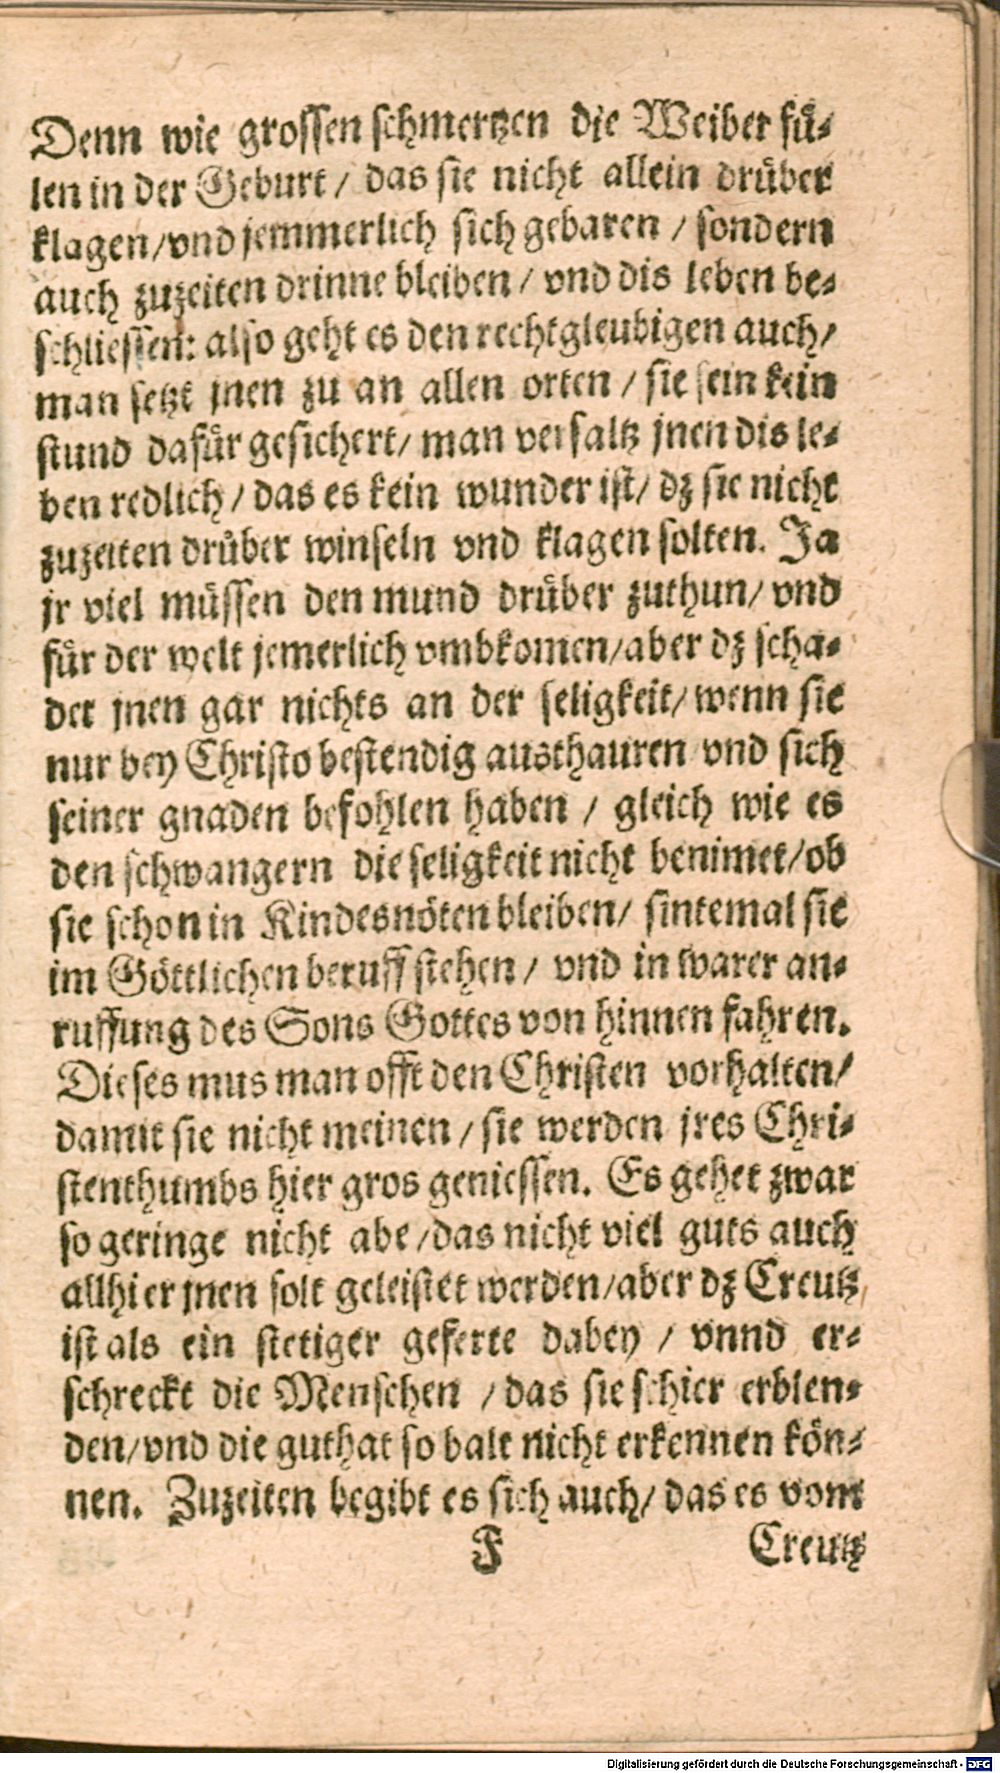 Denn wie grossen schmertzen die Weiber fü-
len in der Geburt / das sie nicht allein drüber
klagen/vnd jemmerlich sich gebaren / sondern
auch zuzeiten drinne bleiben / vnd dis leben be-
schliessen: also geht es den rechtgleubigen auch/
man setzt jnen zu an allen orten / sie sein kein
stund dafür gesichert/ man versaltz jnen dis le-
ben redlich / das es kein wunder ist/ dz sie nicht
zuzeiten drüber winseln vnd klagen solten. Ja
jr viel müssen den mund drüber zuthun/ vnd
für der welt jemerlich vmbkomen/aber dz scha-
det jnen gar nichts an der seligkeit/ wenn sie
nur bey Christo bestendig austhauren vnd sich
seiner gnaden befohlen haben / gleich wie es
den schwangern die seligkeit nicht benimet/ob
sie schon in Kindesnöten bleiben/ sintemal sie
im Göttlichen beruff stehen / vnd in warer an-
ruffung des Sons Gottes von hinnen fahren.
Dieses mus man offt den Christen vorhalten/
damit sie nicht meinen / sie werden jres Chri-
stenthumbs hier gros geniessen. Es gehet zwar
so geringe nicht abe /das nicht viel guts auch
allhier jnen solt geleistet werden/aber dz Creutz
ist als ein stetiger geferte dabey / vnnd er-
schreckt die Menschen / das sie schier erblen-
den/vnd die guthat so balt nicht erkennen kön-
nen. Zuzeiten begibt es sich auch/ das es vom
F Creutz
Digitalisierung gefördert durch die Deutsche Forschungsgemeinschaft - DFG